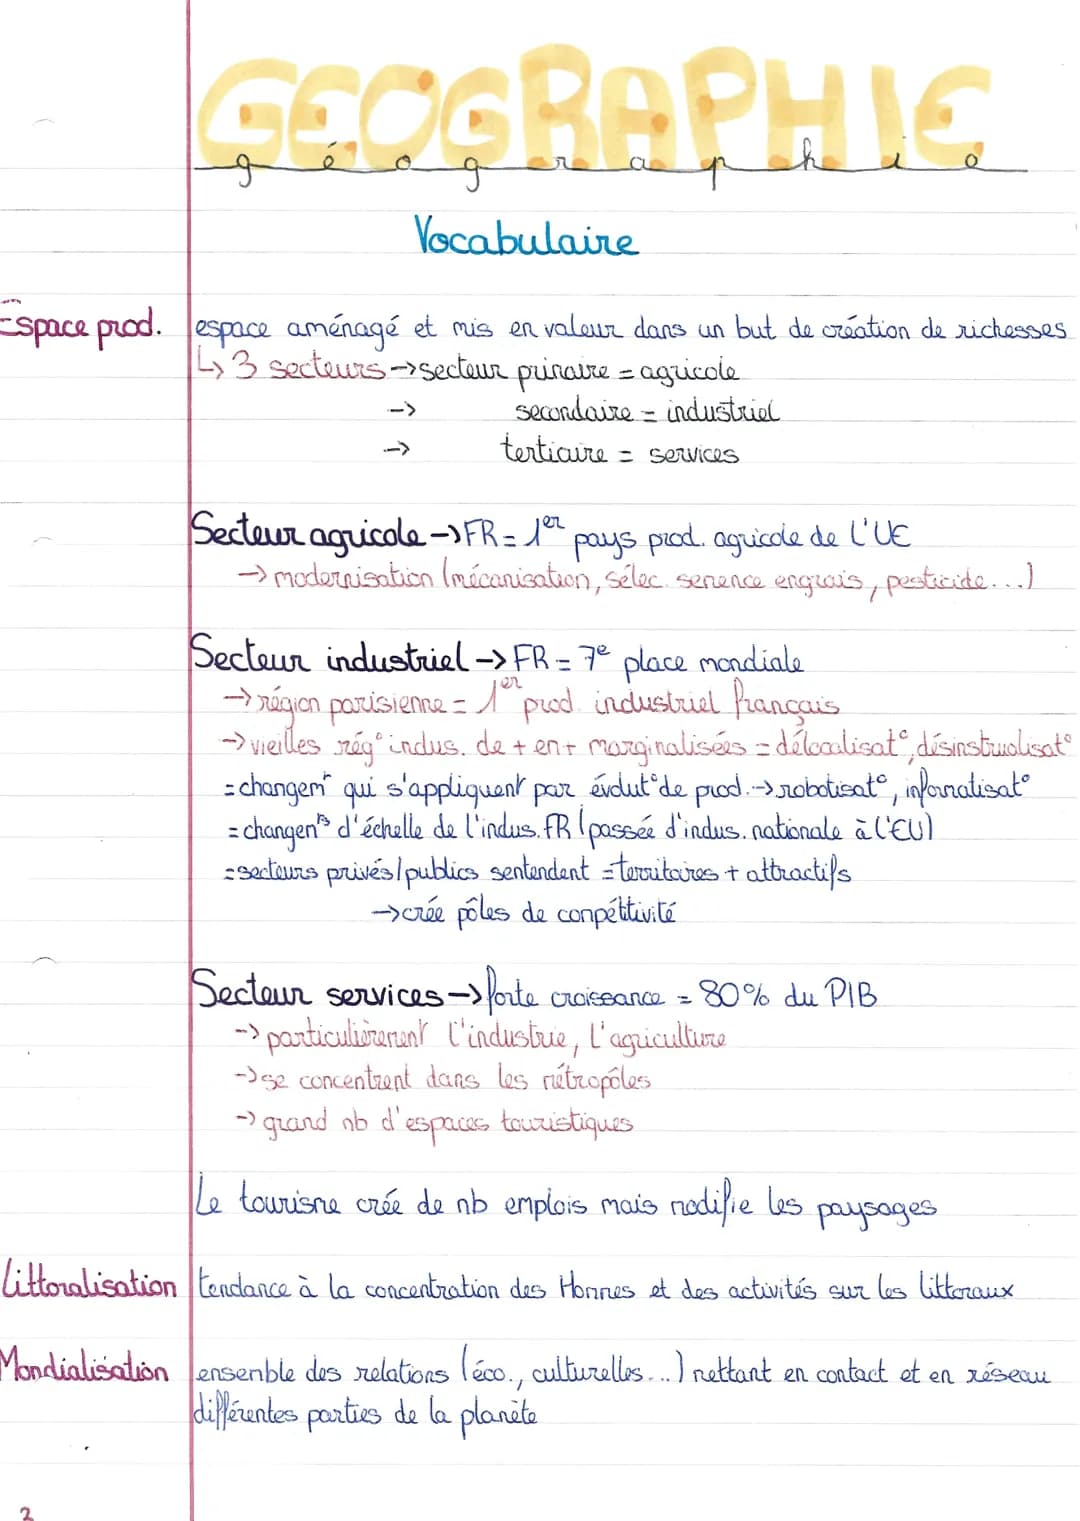 GEOGRAPHIE
géographie
Vocabulaire
Espace prod. espace aménagé et mis en valeur dans un but de création de richesses
↳ 3 secteurs -> secteur primaire = agricole
-> secondaire = industriel
-> tertiaire = services
Secteur agricole -> FR = 1er pays prod. agricole de l'UE
-> modernisation (mécanisation, sélec. semence engrais, pesticide...)
Secteur industriel -> FR = 7e place mondiale
-> région parisienne = 1er prod. industriel français
-> vieilles rég° indus. de + en + marginalisées = délocalisat°, désinstrualisat°
= changemt qui s'appliquent par évolut° de prod. -> robotisat°, informatisat°
= changemts d'échelle de l'indus. FR (passée d'indus. nationale à l'EU)
= secteurs privés/publics sentendent = territoires + attractifs
-> crée pôles de compétitivité
Secteur services -> forte croissance = 80% du PIB
-> particulièrement l'industrie, l'agriculture
-> se concentrent dans les métropôles
-> grand nb d'espaces touristiques
Le tourisme crée de nb emplois mais modifie les paysages
Littoralisation tendance à la concentration des Hommes et des activités sur les littoraux
Mondialisation ensemble des relations (éco., culturelles...) mettant en contact et en réseau
différentes parties de la planète